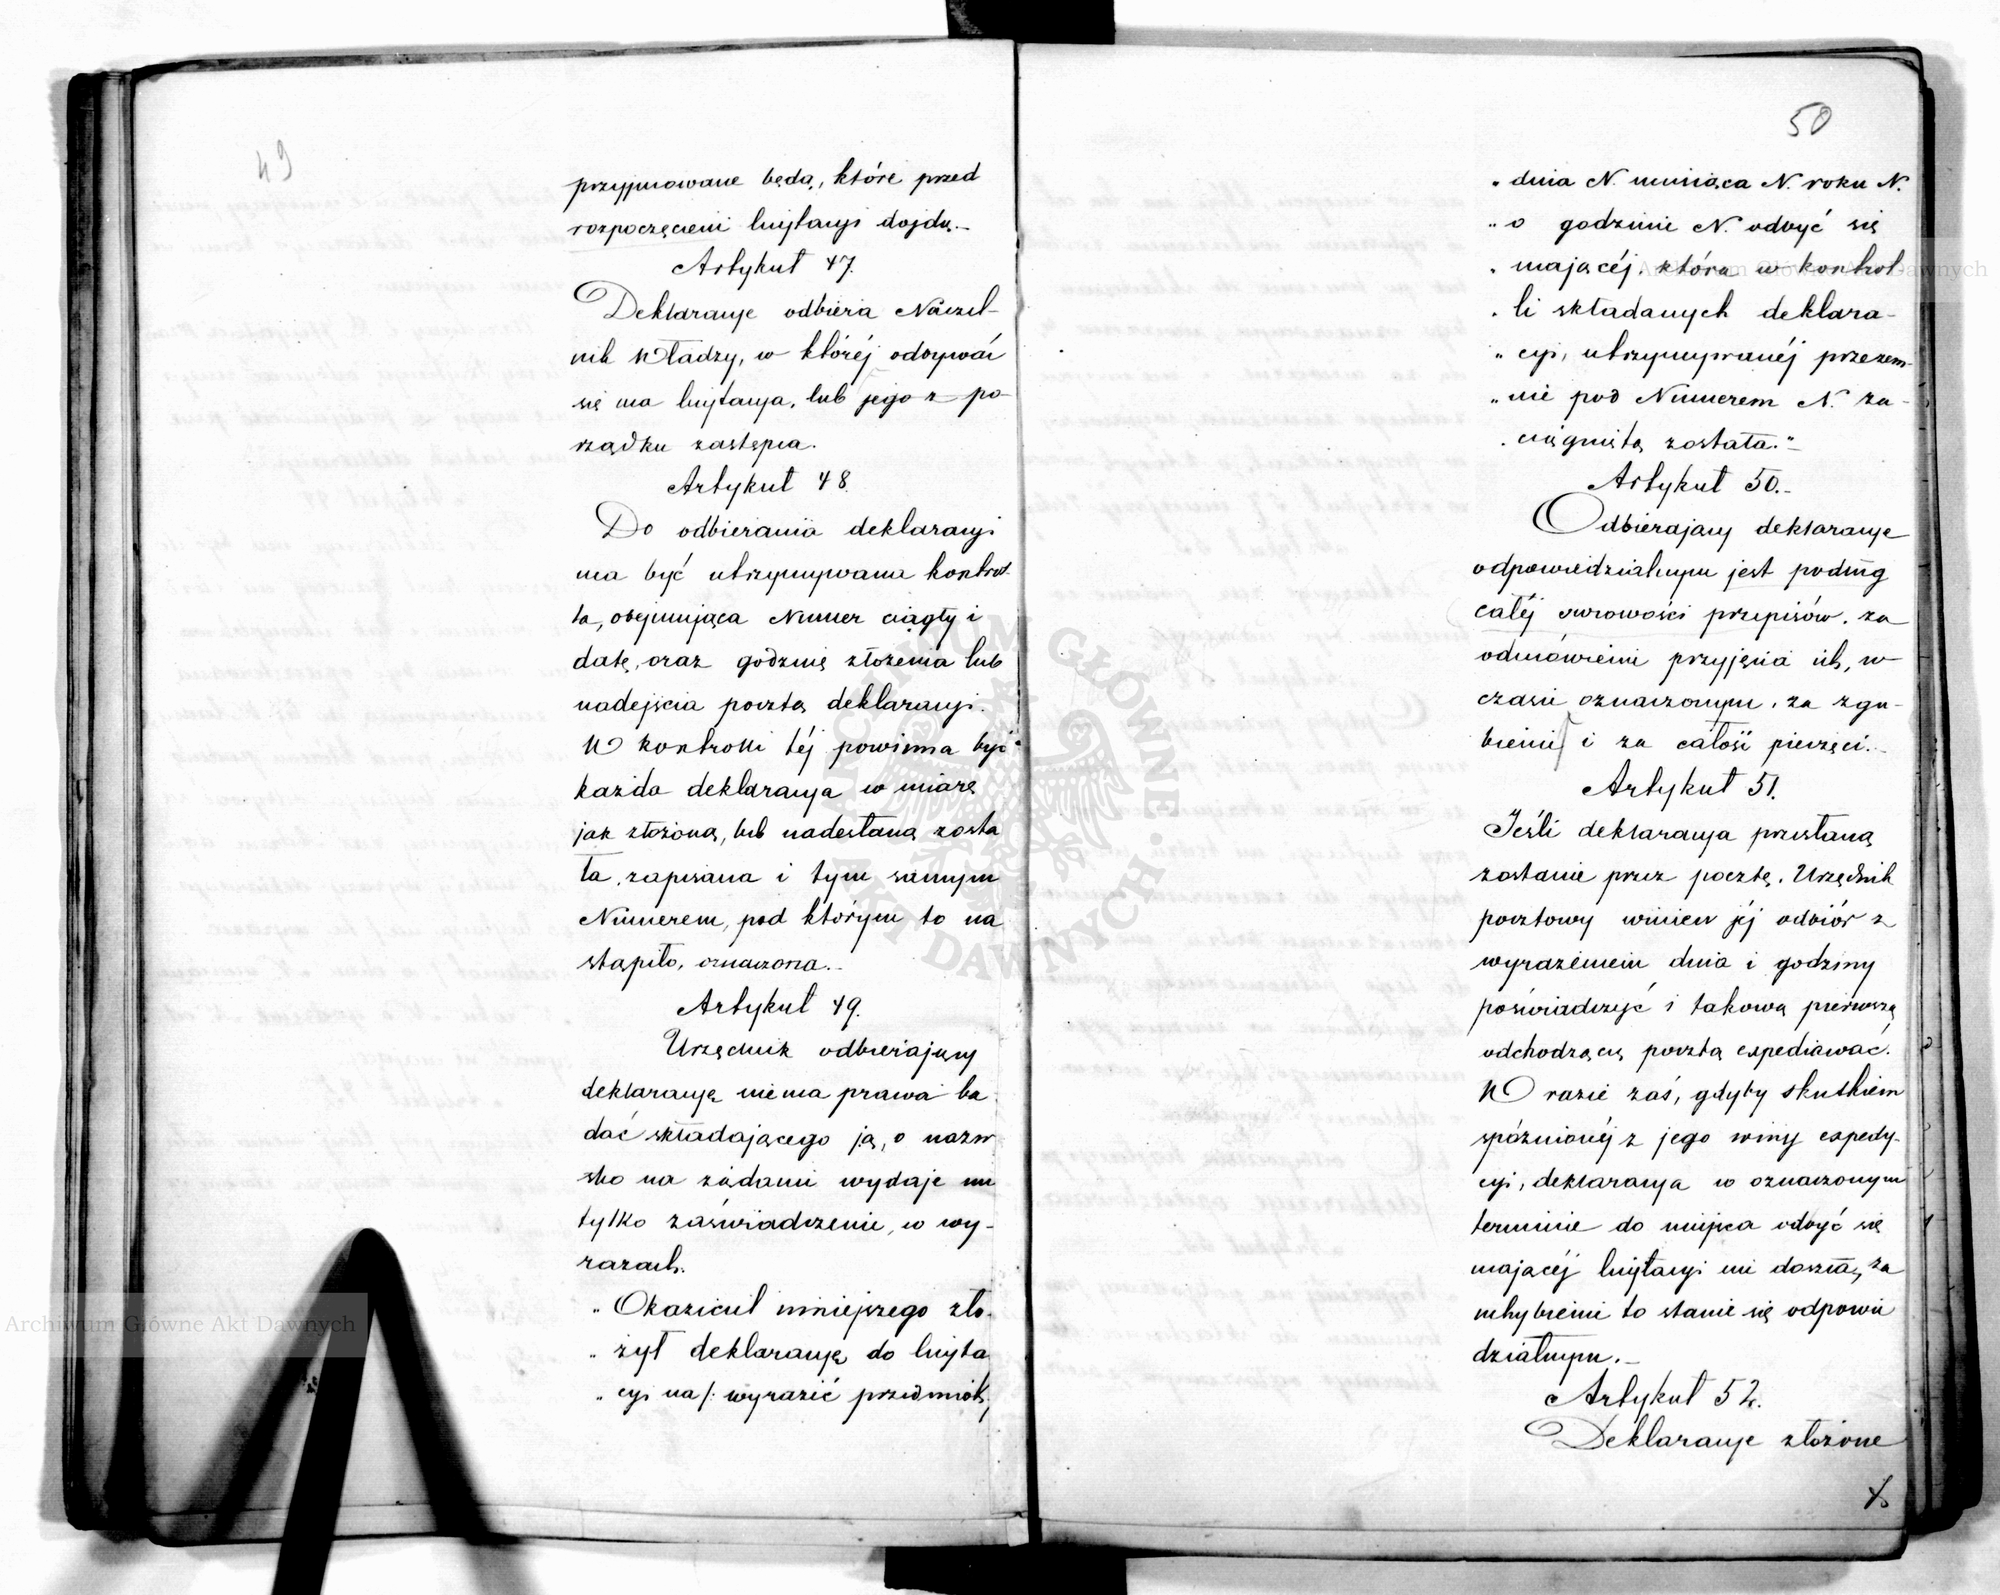 49
przyjmowane będą, które przed
rozpoczęciem licytacyi dojdą.-
Artykuł 47.
Deklaracye odbiera Naczel-
nik Władzy, w któréj odbywać
się ma licytacya, lub jego z po-
rządku zastępca.
Artykuł 48.
Do odbierania deklaracyi
ma być utrzymywana kontrol-
la, obejmująca Numer ciągły i
datę, oraz godzinę złożenia lub
nadejścia pocztą deklaracyi.
W kontrolli téj powinna być
każda deklaracya w miarę
jak złożoną, lub nadesłaną zosta
ła, zapisana i tym samym
Numerem, pod którym to na
stąpiło, oznaczona.-
Artykuł 49.
Urzędnik odbierający
deklaracyę niema prawa ba
dać składającego ją, o nazwi
sko na żądanie wydaje mu
tylko zaświadczenie, w wy-
razach.
„ Okaziciel niniejszego zło-
„ żył deklaracyę do licyta
„ cyi na /: wyrazić przedmiot,
50
„ dnia N. miesiąca N. roku N.
„ o godzinie N. odbyć się
„ mającéj, która w kontrol
„ li składanych deklara-
„ cyi, utrzymywanéj przezem-
„ nie pod Numerem N. za-
„ ciągniętą została."-
Artykuł 50.-
Odbierający deklaracye
odpowiedzialnym jest podług
całéj surowości przepisów, za
odmówienie przyjęcia ich, w
czasie oznaczonym, za zgu-
bienie i za całość pieczęci.-
Artykuł 51.
Jeśli deklaracya przesłaną
zostanie przez pocztę, Urzędnik
pocztowy winien jéj odbiór z
wyrażeniem dnia i godziny
poświadczyć i takową pierwszą
odchodzącą pocztą expediować.
W razie zaś, gdyby skutkiem
spóźnionéj z jego winy expedy-
cyi, deklaracya w oznaczonym
terminie do miejsca odbyć się
mającéj licytacyi nie doszła, za
uchybienie to stanie się odpowie
dzialnym.-
Artykuł 52.
Deklaracye złożone
Archiwum Główne Akt Dawnych
Archiwum Główne Akt Dawnych
ARCHIWUM GŁÓWNE · AKT DAWNYCH ·